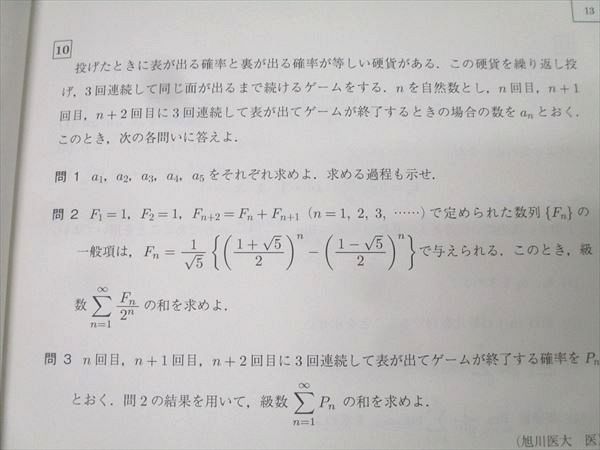 13
10
投げたときに表が出る確率と裏が出る確率が等しい硬貨がある．この硬貨を繰り返し投
げ，3回連続して同じ面が出るまで続けるゲームをする．nを自然数とし，n回目，n+1
回目，n+2回目に3回連続して表が出てゲームが終了するときの場合の数をa_nとおく．
このとき，次の各問いに答えよ．
問1 a_1，a_2，a_3，a_4，a_5をそれぞれ求めよ．求める過程も示せ．
問2 F_1=1，F_2=1，F_{n+2}=F_n+F_{n+1}（n=1，2，3，……）で定められた数列{F_n}の
一般項は，F_n=1/√5{((1+√5)/2)^n−((1−√5)/2)^n}で与えられる．このとき，級
数∑_{n=1}^{∞} F_n/2^n の和を求めよ．
問3 n回目，n+1回目，n+2回目に3回連続して表が出てゲームが終了する確率をP_n
とおく．問2の結果を用いて，級数∑_{n=1}^{∞} P_n の和を求めよ．
（旭川医大 医）